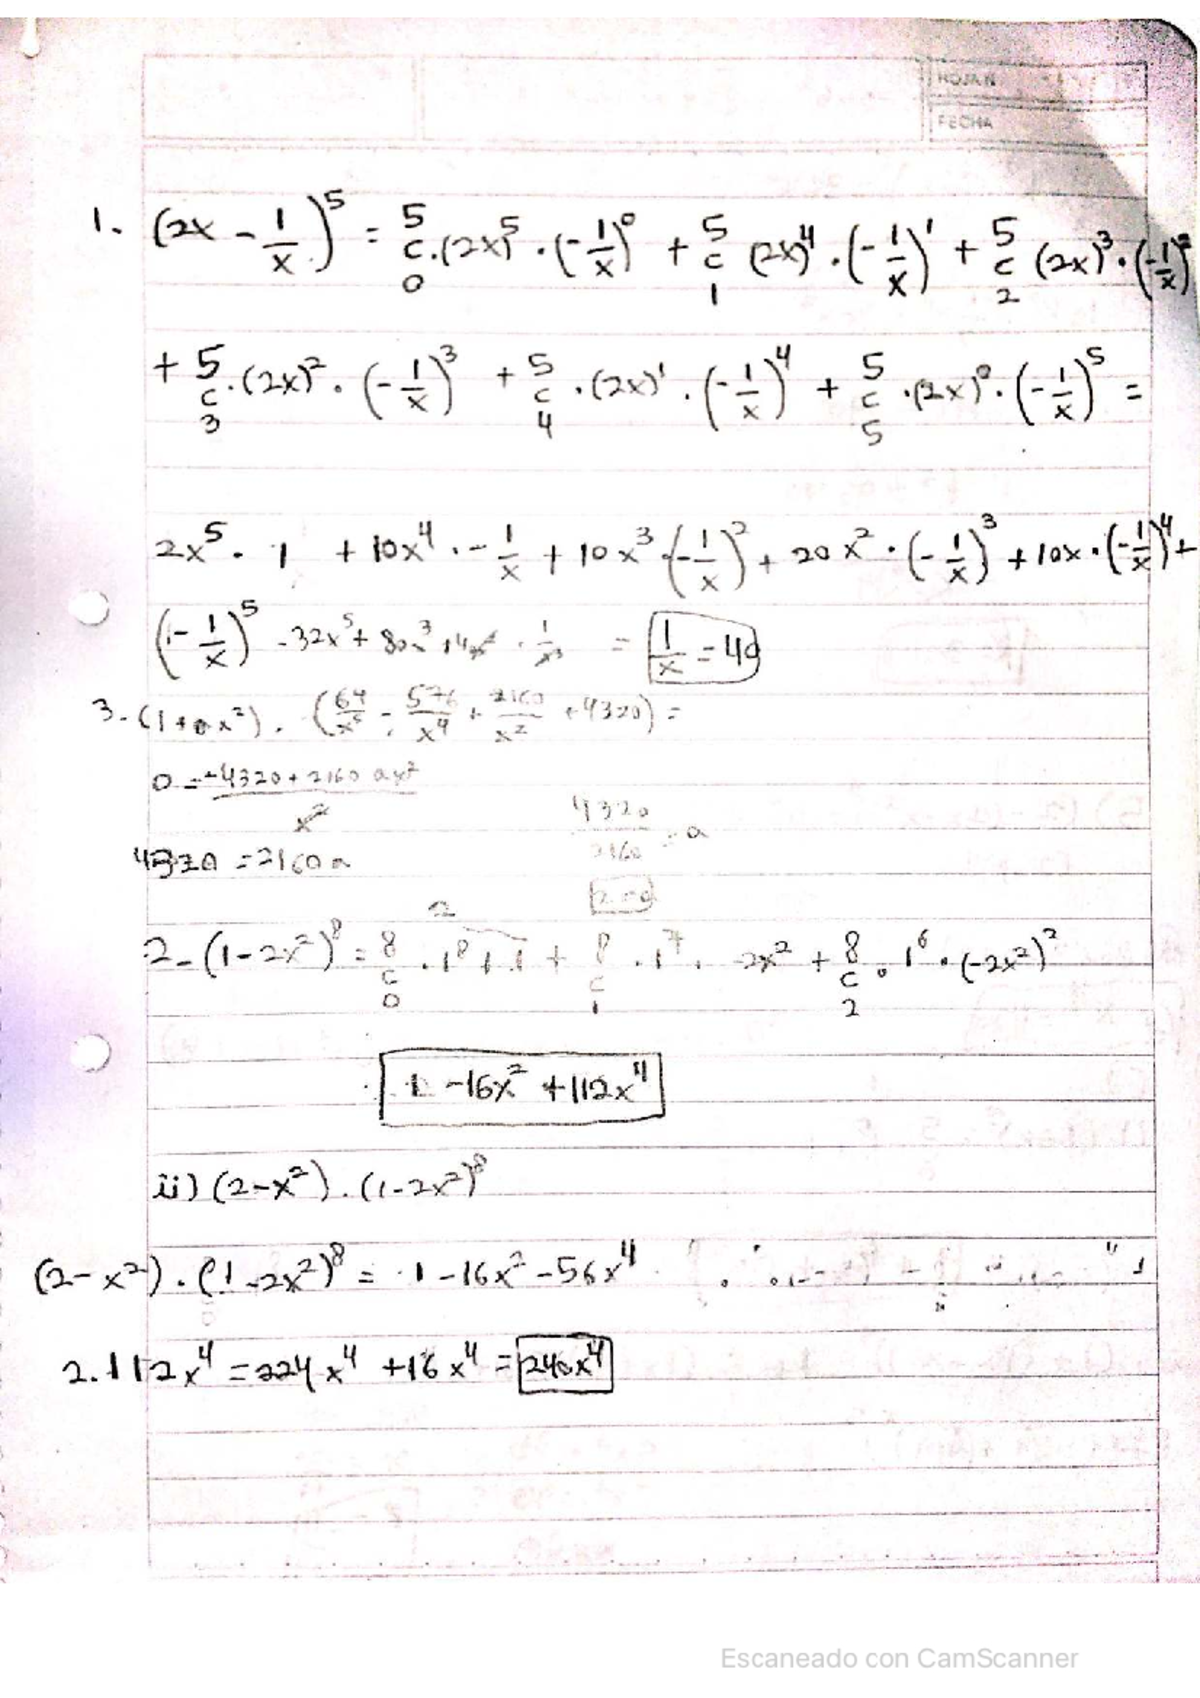 HOJA N
FECHA
1. (2x - 1/x)^5 = 5C0 · (2x)^5 · (-1/x)^0 + 5C1 (2x)^4 · (-1/x)^1 + 5C2 (2x)^3 · (-1/x)^2
+ 5C3 · (2x)^2 · (-1/x)^3 + 5C4 · (2x)^1 · (-1/x)^4 + 5C5 · (2x)^0 · (-1/x)^5 =
2x^5 · 1 + 10x^4 · - 1/x + 10x^3 · (-1/x)^2 + 20x^2 · (-1/x)^3 + 10x · (-1/x)^4 +
(-1/x)^5 - 32x^5 + 80x^3 · 1/x^3 = 1/x = 40
3. (1 + a x^2) · (64/x^6 - 576/x^4 + 2160/x^2 + 4320) =
0 = -4320 + 2160 ax^2 / x^2
4320 / 2160 = a
4320 = 2160 a
2 = a
2
2 - (1 - 2x^2)^8 = 8C0 · 1^8 + 1 + 8C1 · 1^7 · 2x^2 + 8C2 · 1^6 · (-2x^2)^2
1 - 16x^2 + 112x^4
ii) (2 - x^2) · (1 - 2x^2)^8
(2 - x^2) · (1 - 2x^2)^8 = 1 - 16x^2 - 56x^4
2 · 112x^4 = 224x^4 + 16x^4 = 240x^4
Escaneado con CamScanner